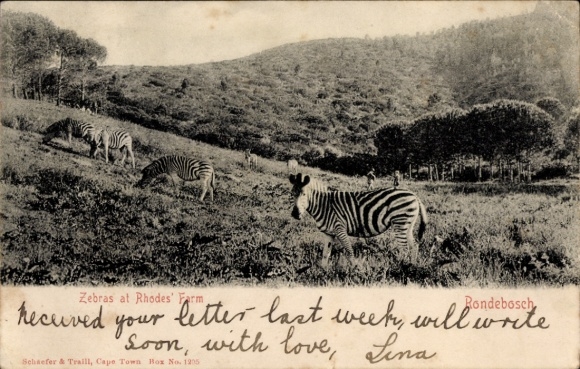 Zebras at Rhodes' Farm
Rondebosch
Received your letter last week, will write
soon, with love, Lina
Schaefer & Traill, Cape Town Box No. 1295